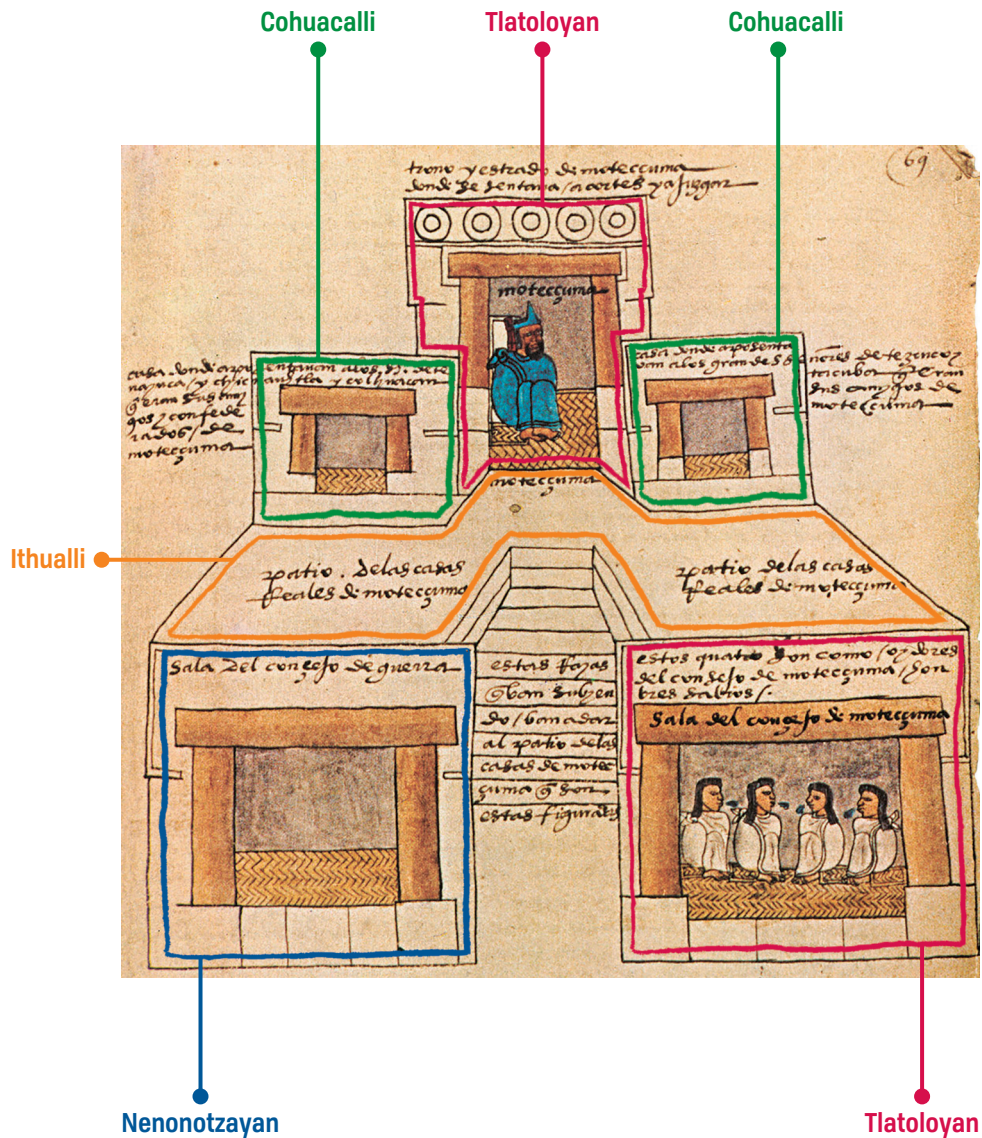 Cohuacalli
Tlatoloyan
Cohuacalli
69
trono y estrado de moteccuma
donde se sentava / a cortes y a juzgar
moteccuma
casa donde aposentavan a los s.s. de te
nayuca / y chicnauhtla y colhuacan
q̃ eran sus ami
gos / y confede
rados / de
moteccuma
casa donde aposenta
van a los grandes señores de tezcuco /
tacuba q̃ eran
sus amigos de
moteccuma
moteccuma
Ithualli
patio . de las casas
reales de moteccuma
patio de las casas
reales de moteccuma
Sala del consejo de guerra
estas rayas
q̃ van subyen
do / van a dar
al patio de las
casas de motec
çuma q̃ son
estas figuradas
estos quatro son como / oydores
del consejo de moteccuma / hon
bres sabios / .
Sala del consejo de moteccuma
Nenonotzayan
Tlatoloyan